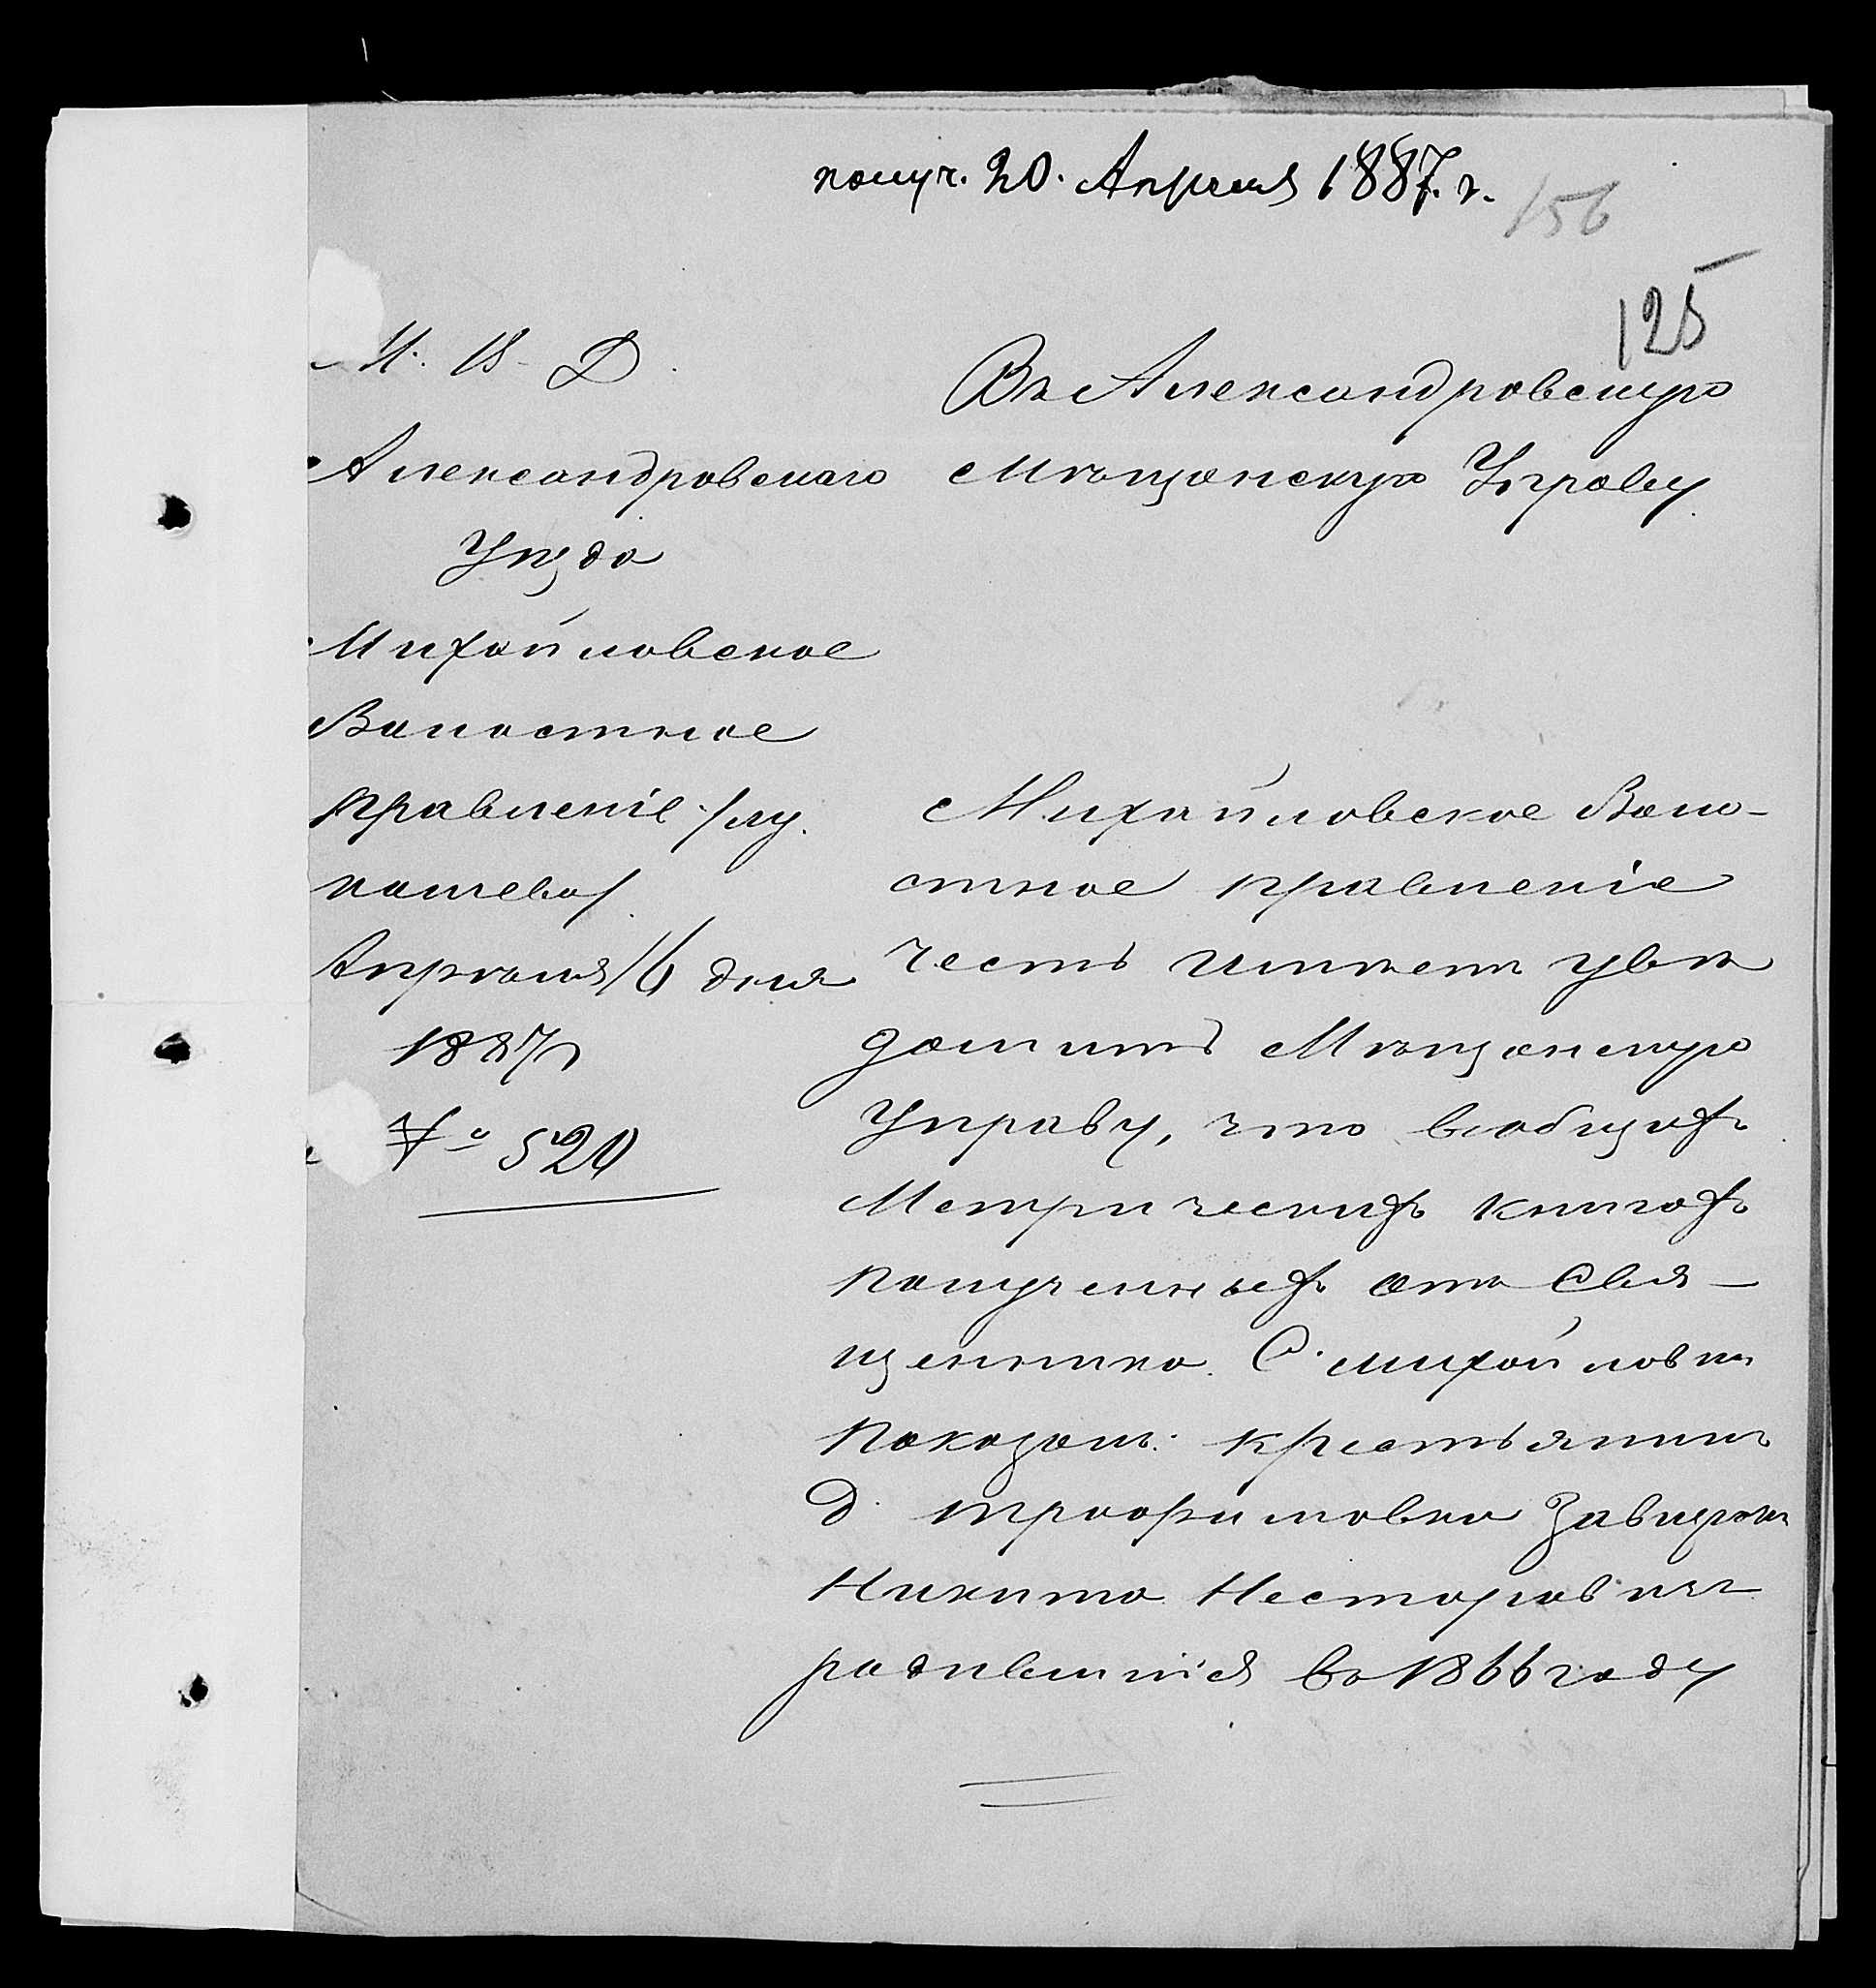 получ. 20. Апреля 1887. г.
156
125
М. В. Д.
Александровскаго
Уѣзда
Михайловское
Волостное
правленіе /лу.
кашево/.
Апрѣля 16 дня
1887 г
№ 520
Въ Александровскую
Мѣщанскую Управу.
Михайловское Воло-
стное правленіе
честь имѣетъ увѣ
домить Мѣщанскую
Управу, что въ общихъ
Метрическихъ книгахъ
полученныхъ отъ Свя-
щенника. С. Михайловки
показанъ: крестьянинъ
д. трофимовки
Никита Несторовичъ
родившійся въ 1866 году